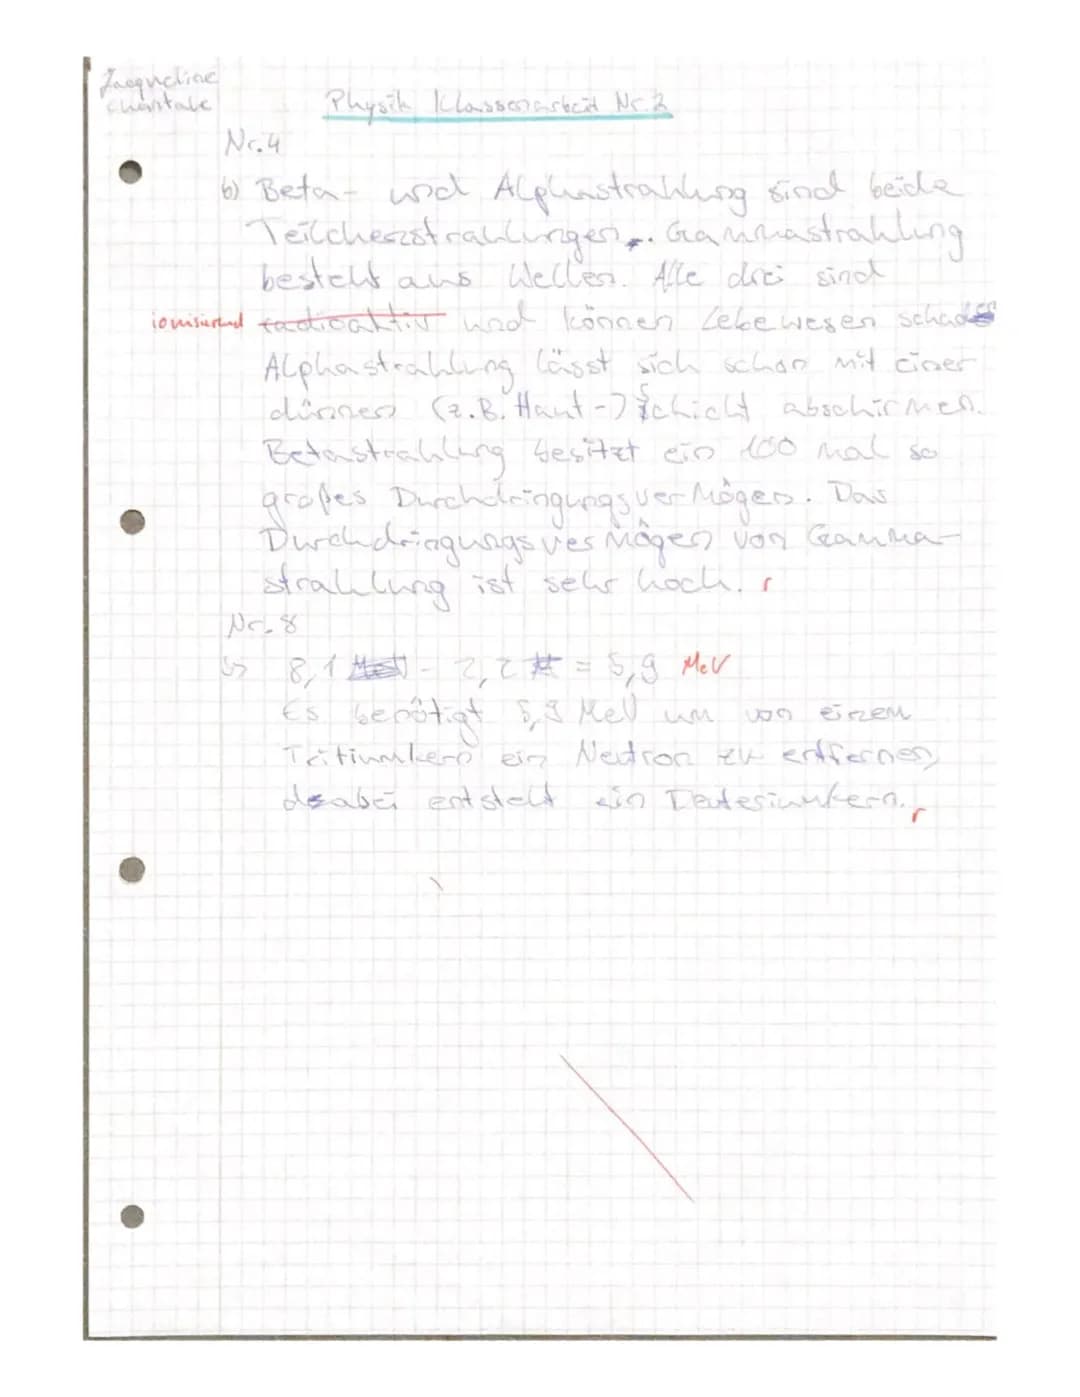 Jacqueline
Chantale
Physik Klassenarbeit Nr. 2
Nr. 4
b) Beta- und Alphastrahlung sind beide
Teilchenstrahlungen. Gammastrahlung
besteht aus Wellen. Alle drei sind
ionisierend radioaktiv und können Lebewesen schaden
Alphastrahlung lässt sich schon mit einer
dünnen (z.B. Haut-) Schicht abschirmen.
Betastrahlung besitzt ein 100 mal so
großes Durchdringungsvermögen. Das
Durchdringungsvermögen von Gamma-
strahlung ist sehr hoch. r
Nr. 8
b) 8,1 - 2,2 = 5,9 MeV
Es benötigt 5,9 MeV um von einem
Tritiumkern ein Neutron zu entfernen,
dabei entsteht ein Deuteriumkern. r